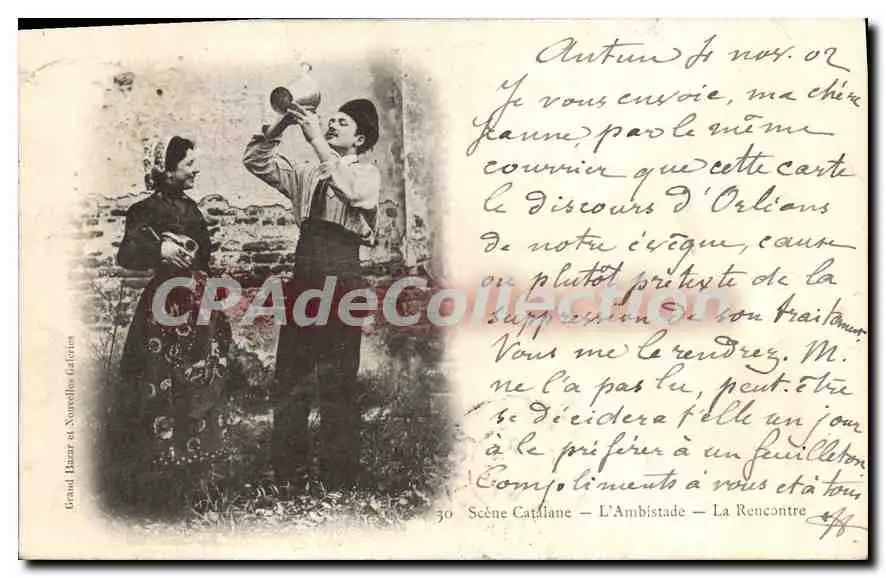 Autun 4 nov. 02
Je vous envoie, ma chère
Jeanne, par le même
courrier que cette carte
le discours d'Orléans
de notre évêque, cause
ou plutôt prétexte de la
suppression de son traitement.
Vous me le rendrez. M.
ne l'a pas lu, peut-être
se décidera t'elle un jour
à le préférer à un feuilleton.
Compliments à vous et à tous
30 Scène Catalane - L'Ambistade - La Rencontre
Grand Bazar et Nouvelles Galeries
CPADeCollection.com